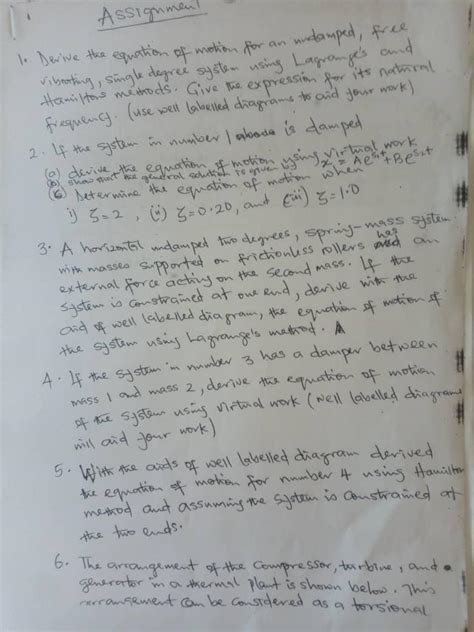 Assignment
1. Derive the equation of motion for an undamped, free
vibrating, single degree system using Lagrange's and
Hamiltons methods. Give the expression for its natural
frequency. (use well labelled diagrams to aid your work)
2. If the system in number 1 above is damped
(a) derive the equation of motion using virtual work
(b) show that the general solution is given by x = Ae^s1t + Be^s2t
(c) Determine the equation of motion when
i) ζ=2, (ii) ζ=0.20, and (iii) ζ=1.0
3. A horizontal undamped two degrees, spring-mass system
with masses supported on frictionless rollers has an
external force acting on the second mass. If the
system is constrained at one end, derive with the
aid of well labelled diagram, the equation of motion of
the system using Lagrange's method.
4. If the system in number 3 has a damper between
mass 1 and mass 2, derive the equation of motion
of the system using virtual work (well labelled diagrams
will aid your work)
5. With the aids of well labelled diagram derived
the equation of motion for number 4 using Hamilton
method and assuming the system is constrained at
the two ends.
6. The arrangement of the compressor, turbine, and
generator in a thermal plant is shown below. This
arrangement can be considered as a torsional